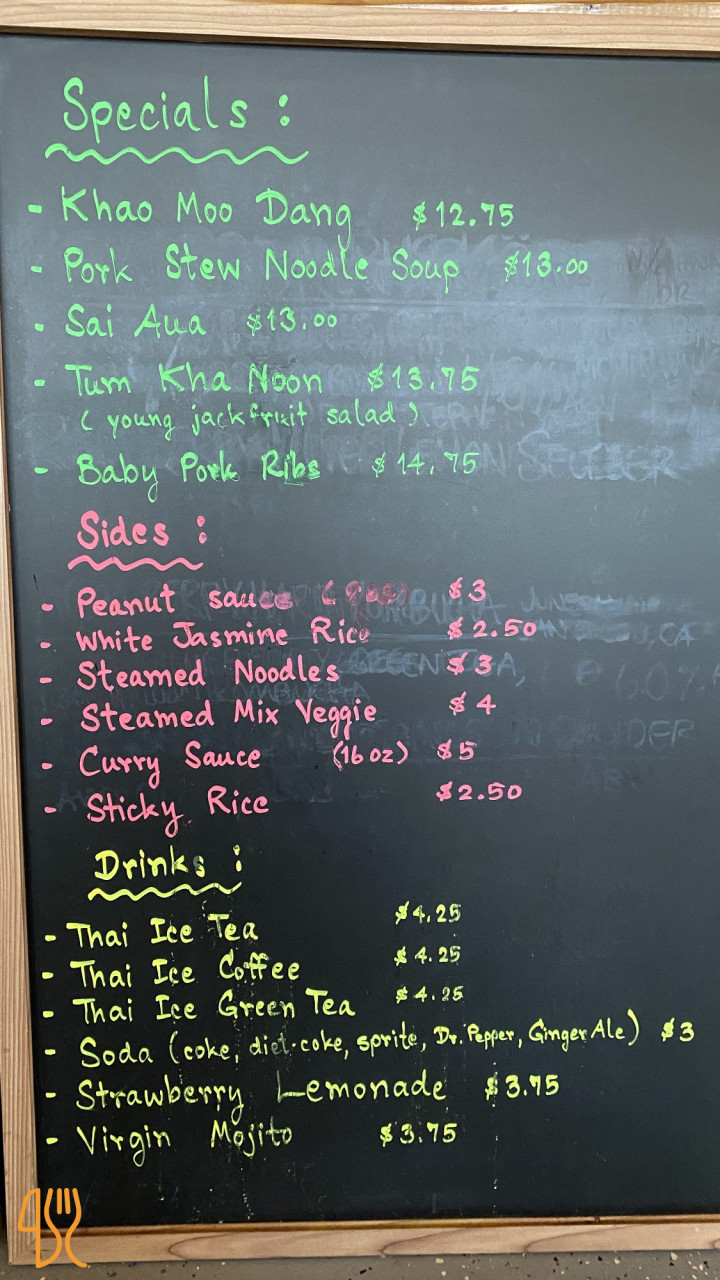 Specials :
- Khao Moo Dang $12.75
- Pork Stew Noodle Soup $13.00
- Sai Aua $13.00
- Tum Kha Noon $13.75
(young jackfruit salad)
- Baby Pork Ribs $14.75
Sides :
- Peanut sauce $3
- White Jasmine Rice $2.50
- Steamed Noodles $3
- Steamed Mix Veggie $4
- Curry Sauce (16 oz) $5
- Sticky Rice $2.50
Drinks :
- Thai Ice Tea $4.25
- Thai Ice Coffee $4.25
- Thai Ice Green Tea $4.25
- Soda (coke, diet-coke, sprite, Dr. Pepper, Ginger Ale) $3
- Strawberry Lemonade $3.75
- Virgin Mojito $3.75